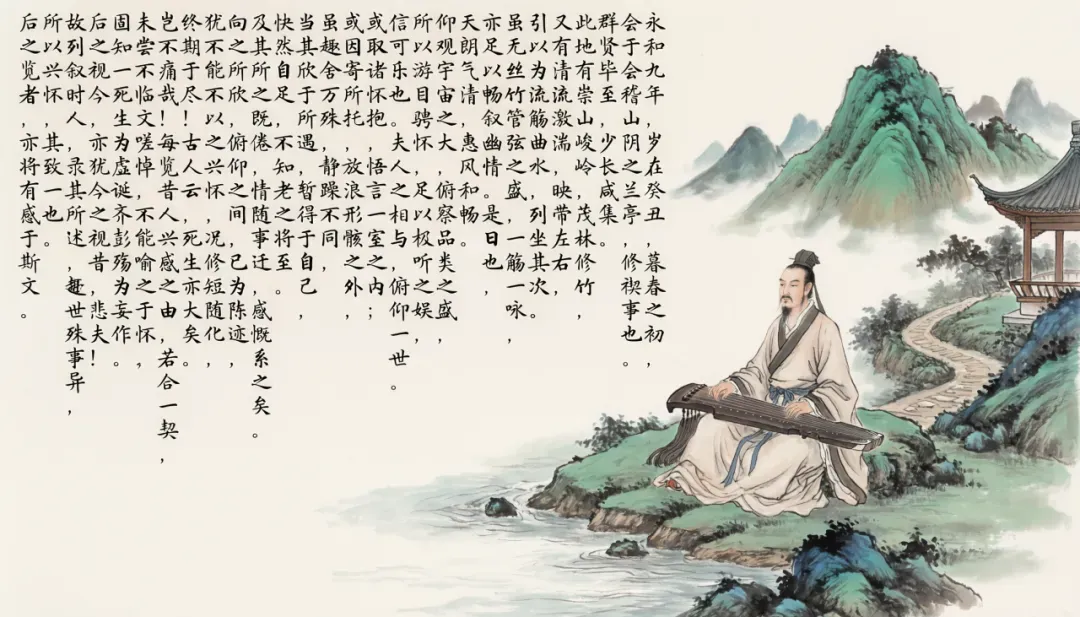 永和九年,岁在癸丑,暮春之初,
会于会稽山阴之兰亭,修禊事也。
群贤毕至,少长咸集。
此地有崇山峻岭,茂林修竹,
又有清流激湍,映带左右,
引以为流觞曲水,列坐其次。
虽无丝竹管弦之盛,一觞一咏,
亦足以畅叙幽情。是日也,
天朗气清,惠风和畅。
仰观宇宙之大,俯察品类之盛,
所以游目骋怀,足以极听之娱,
信可乐也。夫人之相与,俯仰一世。
或取诸怀抱,悟言一室之内;
或因寄所托,放浪形骸之外,
虽趣舍万殊,静躁不同,
当其欣于所遇,暂得于自己,
快然自足,不知老之将至。
及其所之既倦,情随事迁,感慨系之矣。
向之所欣,俯仰之间,已为陈迹,
犹不能不以之兴怀,况修短随化,
终期于尽!古人云,死生亦大矣。
岂不痛哉!每览昔人兴感之由,若合一契,
未尝不临文嗟悼,不能喻之于怀,
固知一死生为虚诞,齐彭殇为妄作。
后之视今,亦犹今之视昔,悲夫!
故列叙时人,录其所述,趣世殊事异,
所以兴怀,其致一也。
后之览者,亦将有感于斯文。